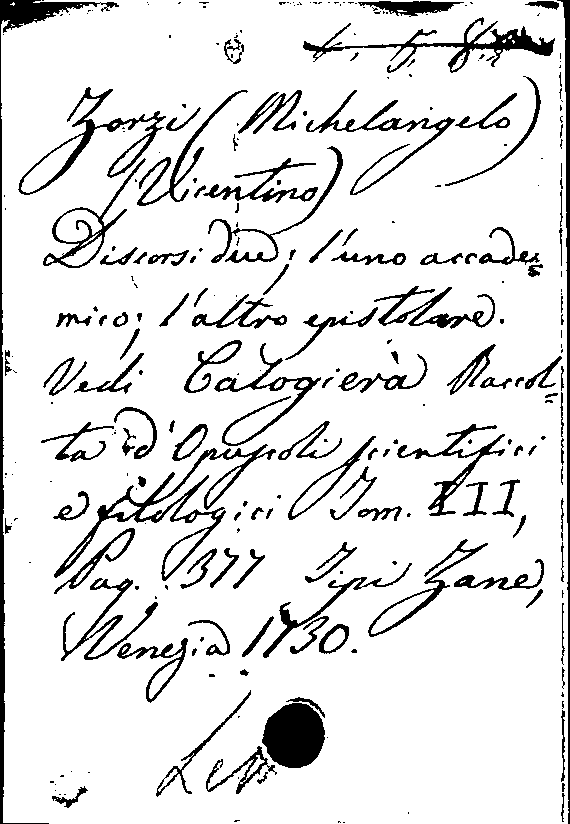 4. 5. 8.
Zorzi (Michelangelo)
(Vicentino)
Discorsi due; l'uno accade=
mico; l'altro epistolare.
Vedi Calogierà Raccol=
ta d'Opuscoli scientifici
e filologici Tom. III,
Pag. 377 Tipi Zane,
Venezia 1730.